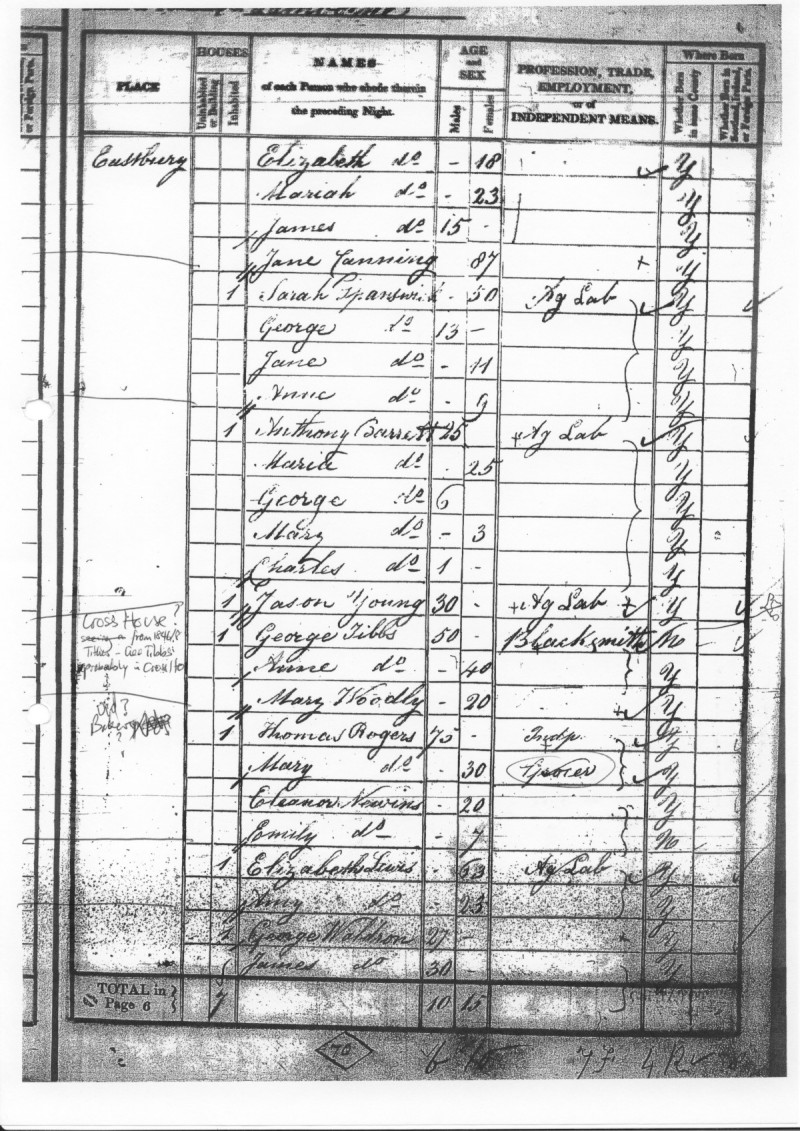 PLACE
HOUSES
Uninhabited or Building
Inhabited
NAMES
of each Person who abode therein
the preceding Night.
AGE
and
SEX
Males
Females
PROFESSION, TRADE,
EMPLOYMENT,
or of
INDEPENDENT MEANS.
Where Born
Whether Born in same County
Whether Born in Scotland, Ireland, or Foreign Parts.
or Foreign Parts.
Eastbury Elizabeth do - 18 Y
Mariah do - 23 Y
James do 15 - Y
Jane Canning 87 + Y
1 Sarah Spanswick - 50 Ag Lab Y
George do 13 - Y
Jane do - 11 Y
Anne do - 9 Y
1 Anthony Barrett 25 + Ag Lab Y
Maria do - 25 Y
George do 6 Y
Mary do - 3 Y
Charles do 1 - Y
1 Jason Young 30 - + Ag Lab Y
Cross House?
from 1846/8
Tithes - Geo Tibbs
probably in Cross Ho
1 George Tibbs 50 - Blacksmith No
Anne do - 40 Y
Mary Woodly - 20 + Y
Old?
1 Thomas Rogers 75 - Indp. Y
Mary do - 30 Grocer Y
Eleanor Newins - 20 Y
Emily do - 7 No
1 Elizabeth Lewis - 63 Ag Lab Y
Amy do - 23 Y
George Waldron 27 - Y
James do 30 - Y
TOTAL in
Page 6 } 7 10 15
76
6 15